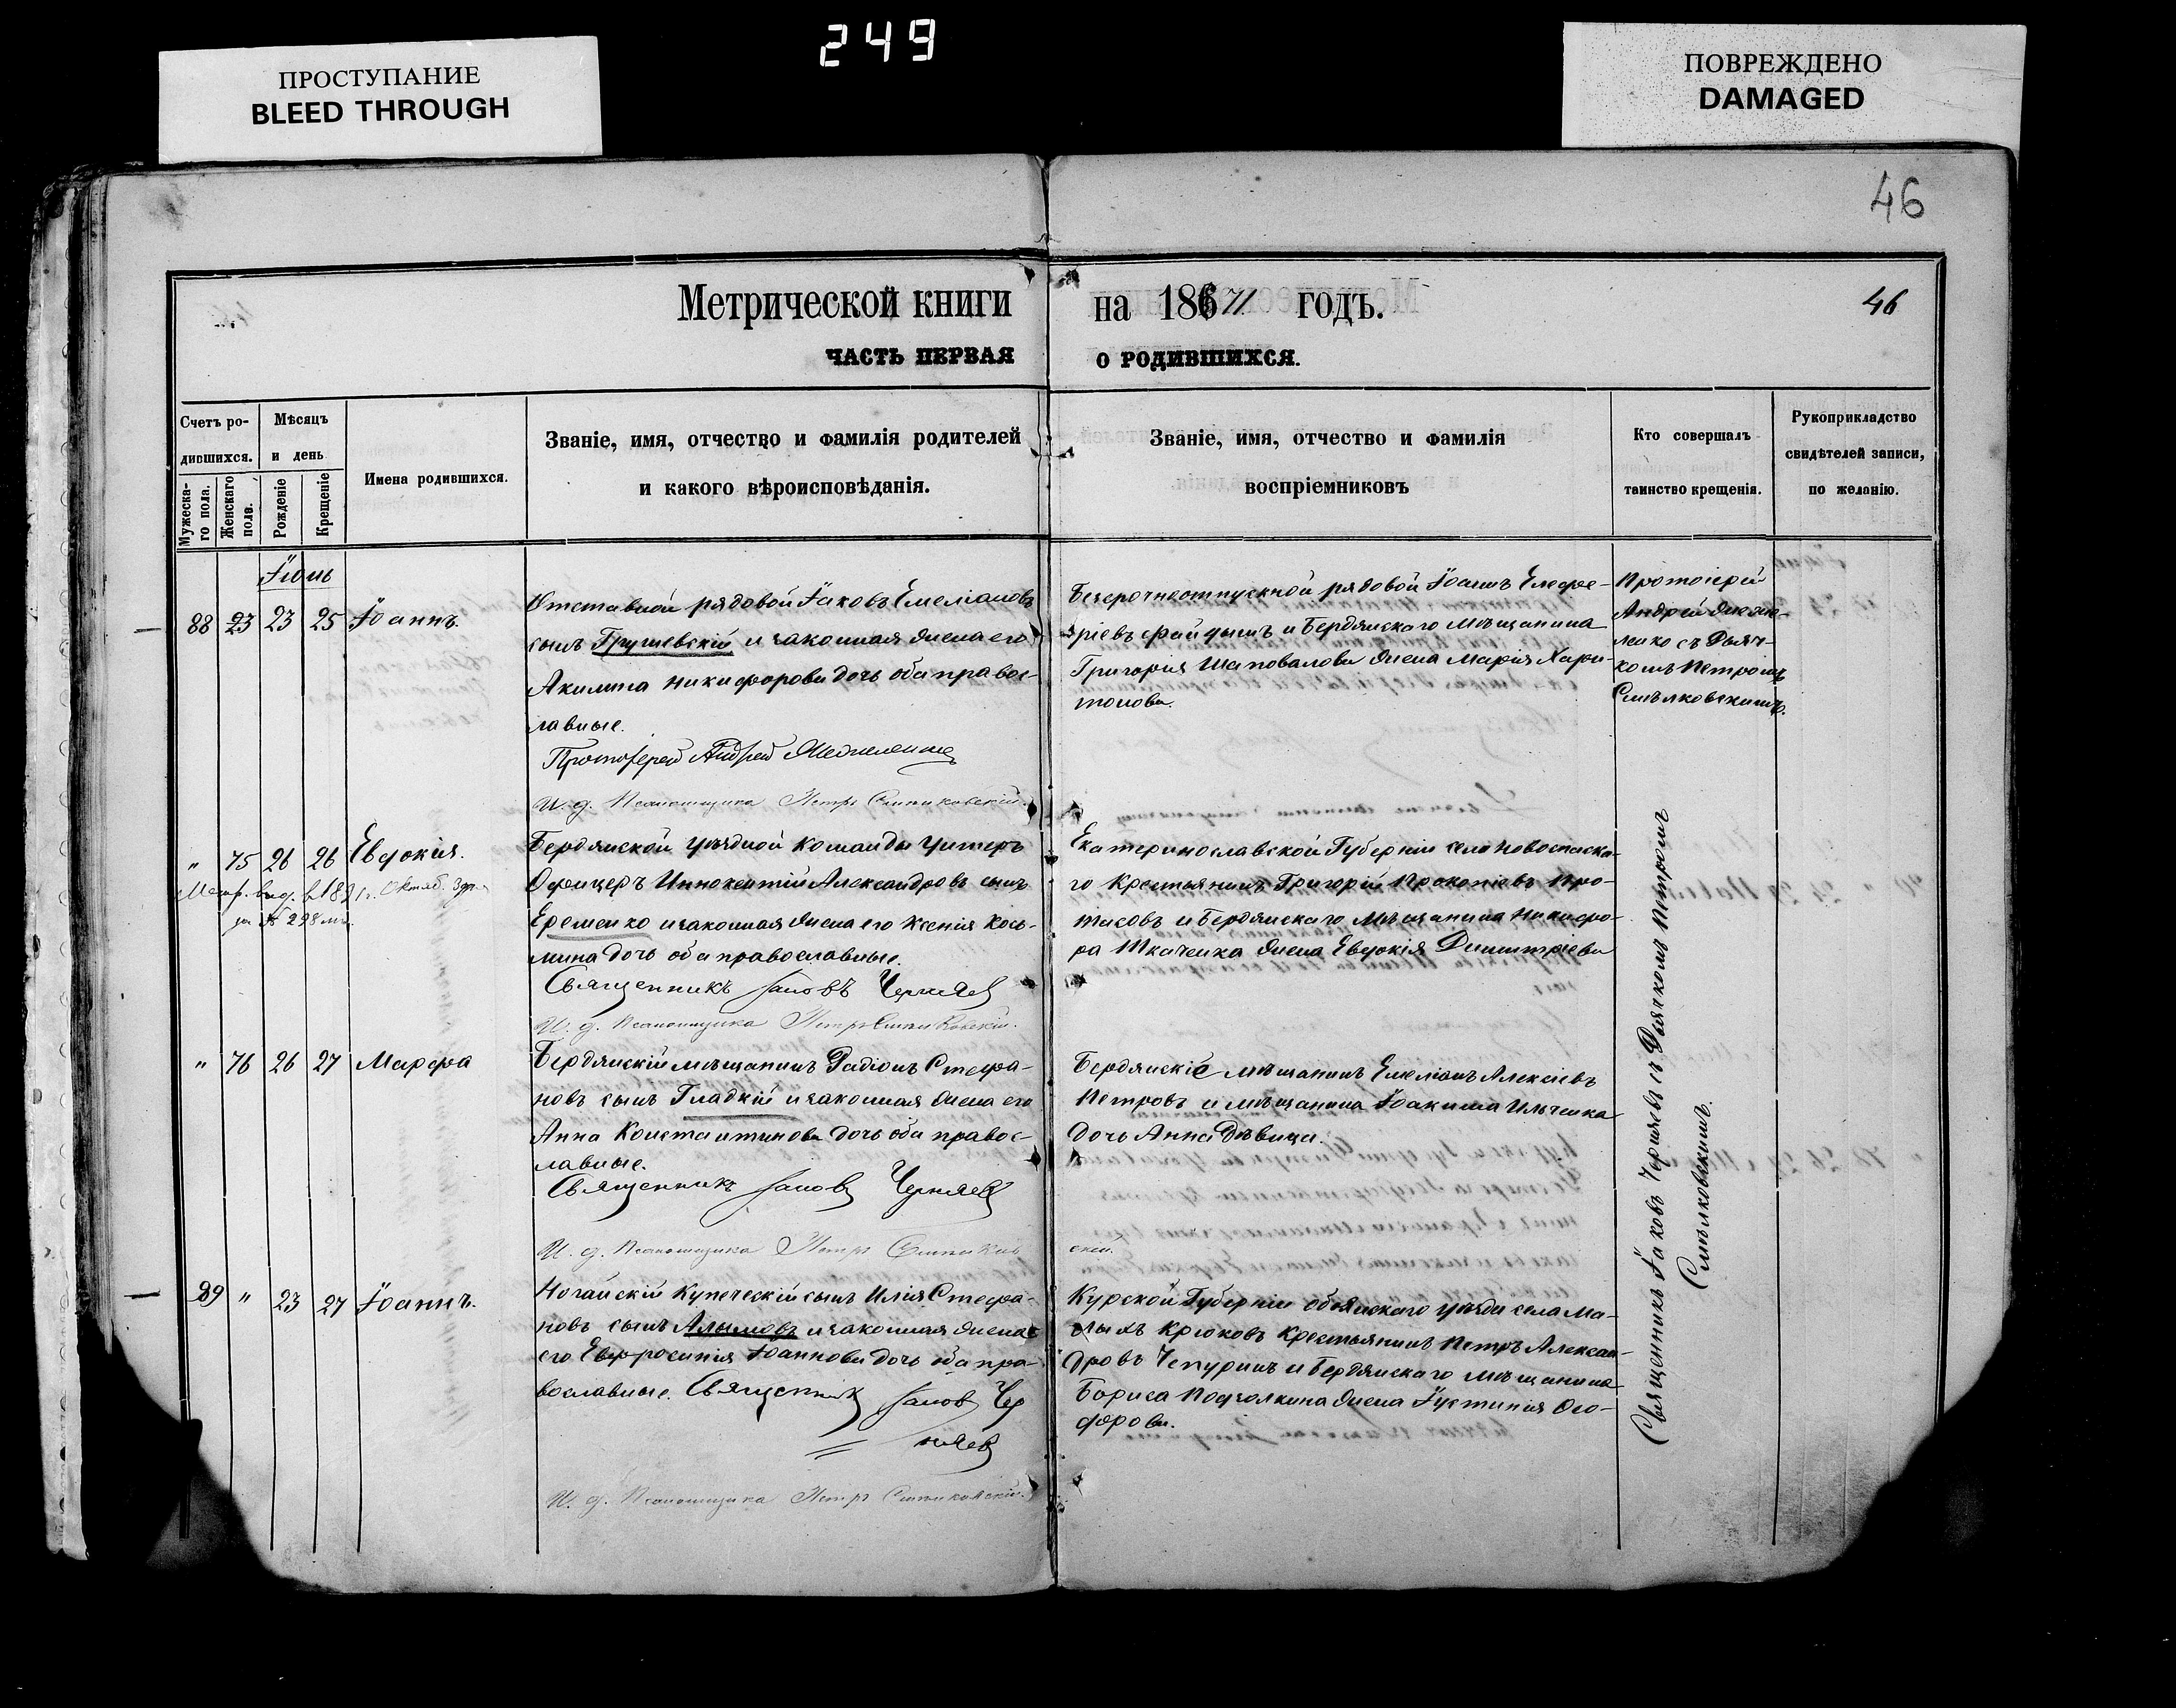 249
ПРОСТУПАНИЕ
BLEED THROUGH
ПОВРЕЖДЕНО
DAMAGED
46
Метрической книги на 1871 годъ.
46
ЧАСТЬ ПЕРВАЯ О РОДИВШИХСЯ.
Счетъ ро-
дившихся.
Мужеска-
го пола.
Женскаго
пола.
Мѣсяцъ
и день
Рожденіе
Крещеніе
Имена родившихся.
Званіе, имя, отчество и фамилія родителей
и какого вѣроисповѣданія.
Званіе, имя, отчество и фамилія
воспріемниковъ
Кто совершалъ
таинство крещенія.
Рукоприкладство
свидѣтелей записи,
по желанію.
Іюль
88 23 23 25 Іоаннъ.
Отставной рядовой Іаковъ Емеліановъ
сынъ Грушевскій и законная жена его
Акилина Никифорова дочь оба правос-
лавные.
Протоіерей Андрей
И. д. Псаломщика Петръ
Безсрочноотпускной рядовой Іоаннъ Елефе-
ріевъ и Бердянскаго мѣщанина
Григорія Шаповалова жена Марія Хари-
тонова.
Протоіерей
Андрей
съ Дьяч-
комъ Петромъ
Смѣлковскимъ.
" 75 26 26 Евдокія.
Метр. выд. в 189 г. Октяб. 3 дня
за № 298 мъ.
Бердянской уѣздной команды Унтеръ
Офицеръ Иннокентій Александровъ сынъ
Еременко и законная жена его Ксенія Кось-
мина дочь оба православные.
Священникъ Іаковъ Черняев
И. д. Псаломщика Петръ
Екатеринославской Губерніи села Новоспаска-
го Крестьянинъ Григорій Прокопіевъ Про-
тасовъ и Бердянскаго Мѣщанина Никифо-
ра Ткаченка жена Евдокія Димитріева
" 76 26 27 Марфа
Бердянскій мѣщанинъ Радіонъ Стефа-
новъ сынъ Гладкій и законная жена его
Анна Константинова дочь оба правос-
лавные.
Священникъ Іаковъ Черняев
И. д. Псаломщика Петръ
Бердянскіе мѣщанинъ Емеліанъ Алексіевъ
Петровъ и мѣщанина Іоакима Ильченка
дочь Анна Дѣвица.
89 " 23 27 Іоаннъ.
Ногайскій Купеческій сынъ Илія Стефа-
новъ сынъ Алымовъ и законная жена
его Евфросинія Іоаннова дочь оба пра-
вославные. Священникъ Іаков Чер
няев
И. д. Псаломщика Петръ
Курской Губерніи обоянскаго уѣзда села Ма-
лыхъ Крюковъ Крестьянинъ Петръ Алексан-
дровъ Чепуринъ и Бердянскаго мѣщанина
Бориса Подчолкина жена Іустинія Ѳео-
дорова.
Священникъ Іаковъ Черняевъ съ Дьячкомъ Петромъ
Смѣлковскимъ.